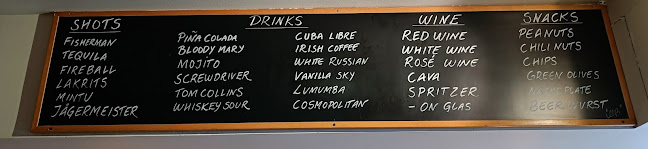 SHOTS
FISHERMAN
TEQUILA
FIREBALL
LAKRITS
MINTU
JÄGERMEISTER
DRINKS
PIÑA COLADA
BLOODY MARY
MOJITO
SCREWDRIVER
TOM COLLINS
WHISKEY SOUR
CUBA LIBRE
IRISH COFFEE
WHITE RUSSIAN
VANILLA SKY
LUMUMBA
COSMOPOLITAN
WINE
RED WINE
WHITE WINE
ROSÉ WINE
CAVA
SPRITZER
- ON GLAS
SNACKS
PEANUTS
CHILI NUTS
CHIPS
GREEN OLIVES
PLATE
BEERWURST